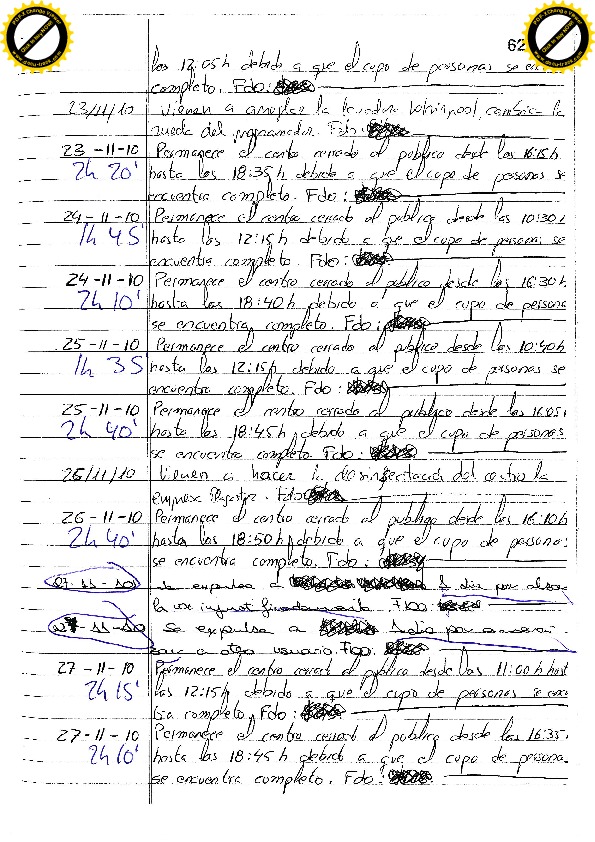 62
las 12:05h debido a que el cupo de personas se en
completo. Fdo:
23/11/10 Vienen a arreglar la lavadora Whirlpool cambia la
rueda del programador. Fdo:
23-11-10 Permanece el centro cerrado al público desde las 16:15h
2h 20' hasta las 18:35h debido a que el cupo de personas se
encuentra completo. Fdo:
24-11-10 Permanece el centro cerrado al público desde las 10:30h
1h 45' hasta las 12:15h debido a que el cupo de personas se
encuentra completo. Fdo:
24-11-10 Permanece el centro cerrado al público desde las 16:30h
2h 10' hasta las 18:40h debido a que el cupo de persona
se encuentra completo. Fdo:
25-11-10 Permanece el centro cerrado al público desde las 10:40h
1h 35' hasta las 12:15h debido a que el cupo de personas se
encuentra completo. Fdo:
25-11-10 Permanece el centro cerrado al público desde las 16:05
2h 40' hasta las 18:45h debido a que el cupo de personas
se encuentra completo. Fdo:
26/11/10 Vienen a hacer la desinfectación del centro la
empresa Fdo:
26-11-10 Permanece el centro cerrado al público desde las 16:10h
2h 40' hasta las 18:50h debido a que el cupo de personas
se encuentra completo. Fdo:
27-11-10 se expulsa a 1 día por
Fdo:
27-11-10 se expulsa a 1 día por
a otro usuario. Fdo:
27-11-10 Permanece el centro cerrado al público desde las 11:00h hast
2h 15' las 12:15h debido a que el cupo de personas se encu
tra completo. Fdo:
27-11-10 Permanece el centro cerrado al público desde las 16:35
2h 10' hasta las 18:45h debido a que el cupo de persona
se encuentra completo. Fdo: